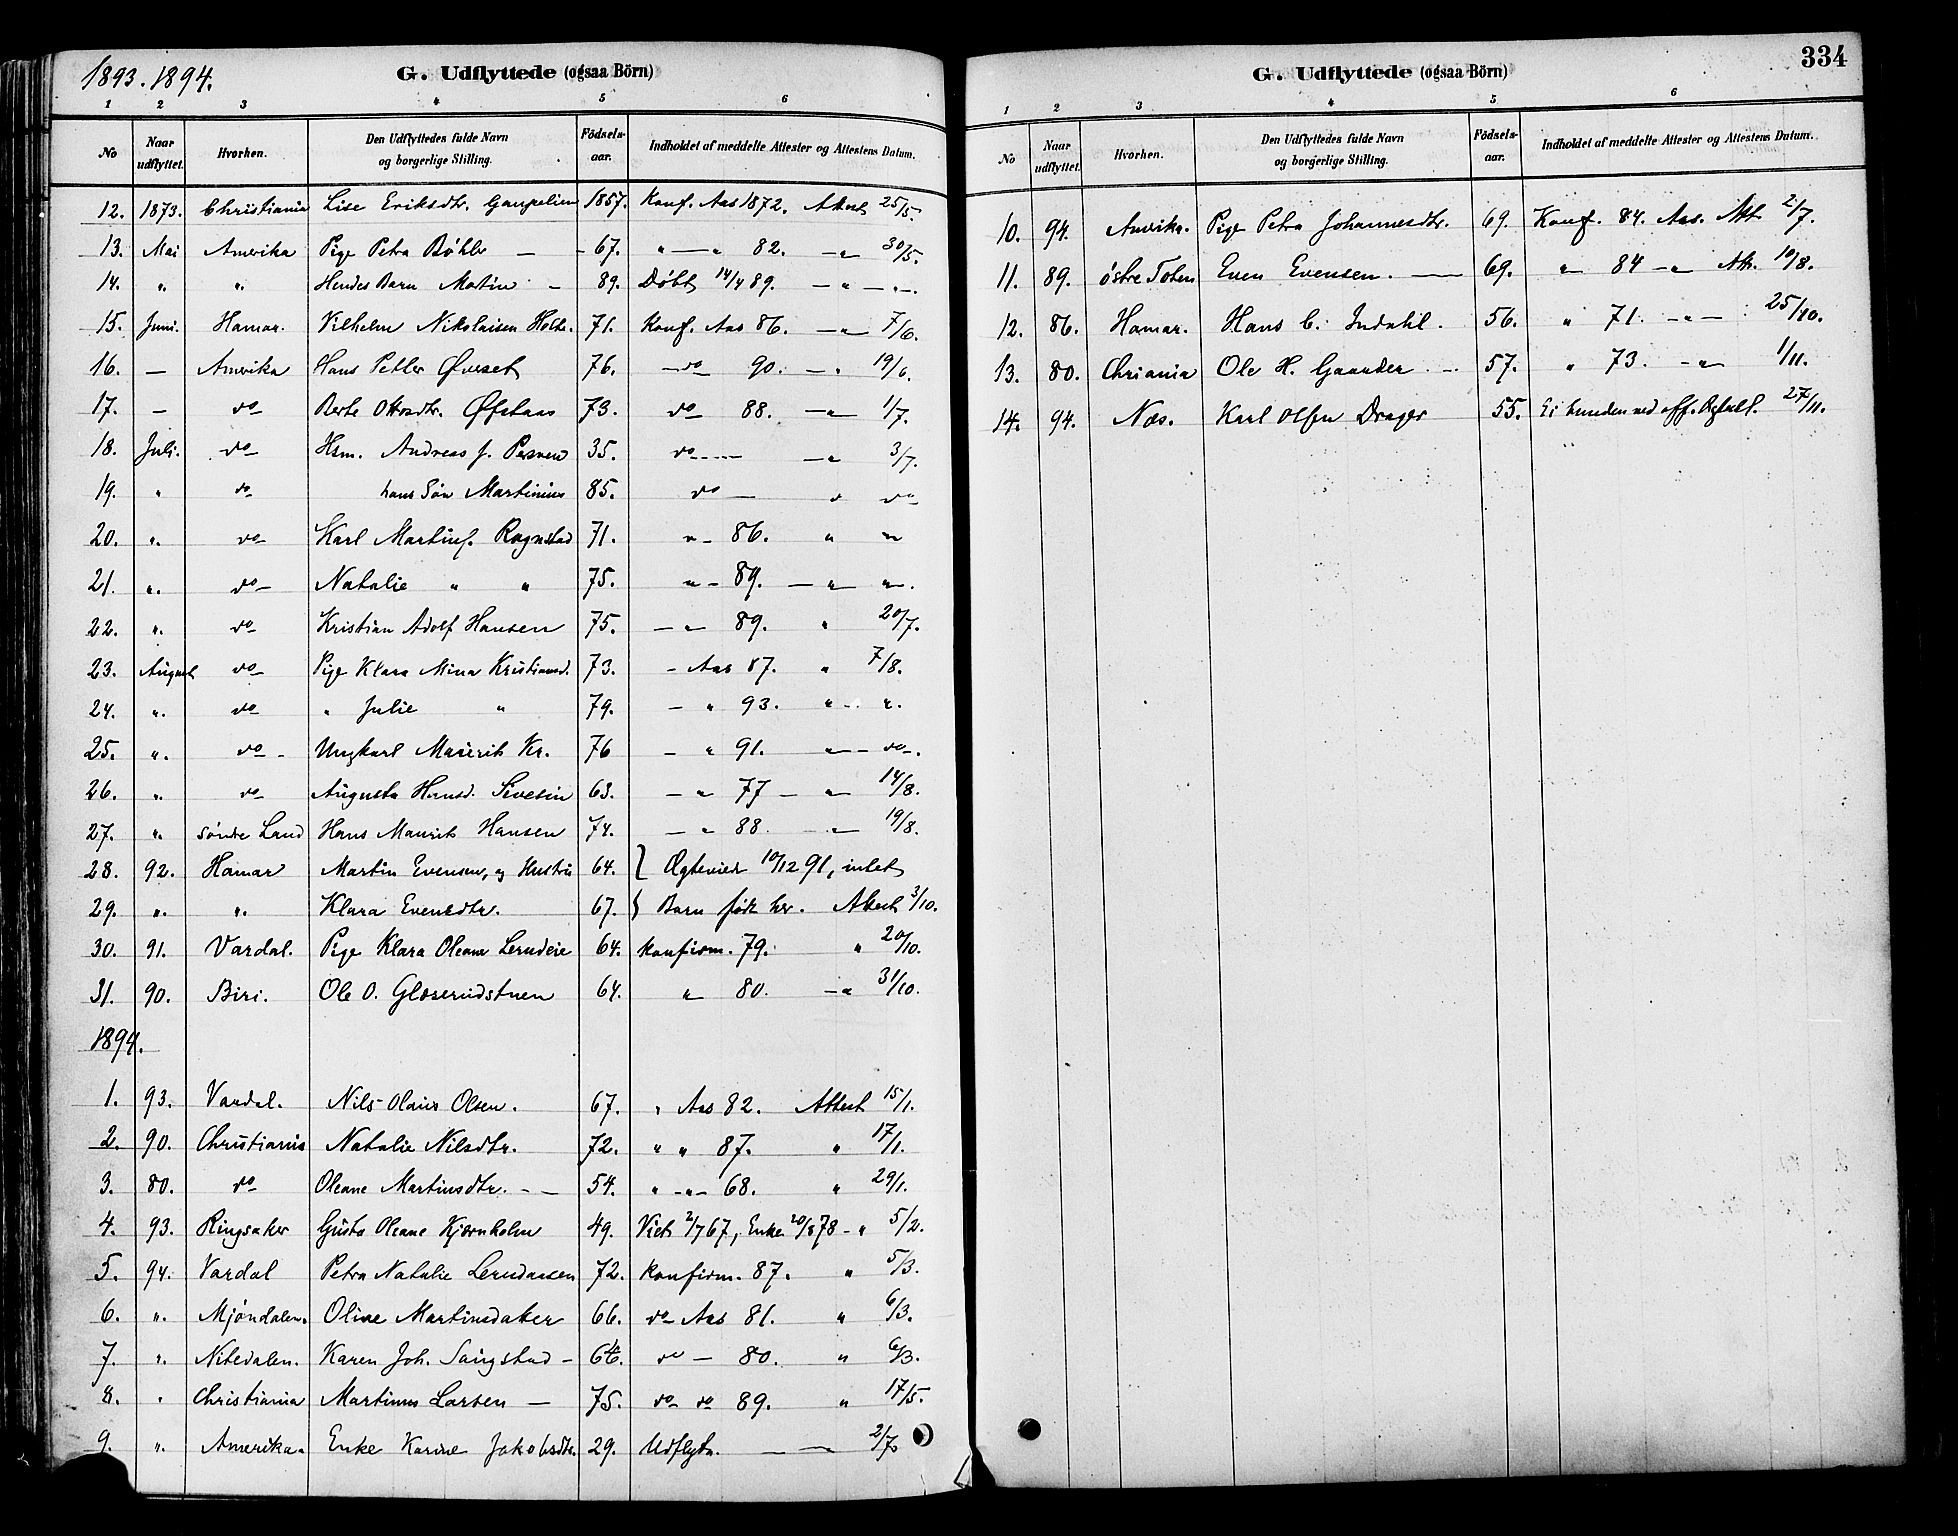 1893. 1894.
G. Udflyttede (ogsaa Börn)
1 2 3 4 5 6
No Naar udflyttet. Hvorhen. Den Udflyttedes fulde Navn og borgerlige Stilling. Födsels-aar. Indholdet af meddelte Attester og Attestens Datum.
12. 1873. Christiania Lise Eriksdtr. Gaupelien 1857. Konf. Aas 1872. Attest 25/5.
13. Mai Amerika Pige Petra Bøhler — 67. " — " 82. — " 30/5.
14. " " Hendes Barn Martin — 89. Døbt 14/4 89. — " — " —
15. Juni. Hamar. Vilhelm Nikolaisen Holte. 71. Konf. Aas 86. — " 7/6.
16. — Amerika Hans Petter Øverset 76. — do 90. — " 19/6.
17. — do Berte Ottosdtr. Øfstaas 73. do 88. — " 1/7.
18. Juli. do Hsm. Andreas J. 35. do — — " 3/7.
19. " do hans Søn Martinius 85. do — " do
20. " do Karl Martins. Rognstad 71. " — 86. " "
21. " do Natalie " " 75. " — 89. — " "
22. " do Kristian Adolf Hansen 75. — " — 89. " 20/7.
23. August do Pige Klara Mina Kristiansd. 73. — Aas 87. " 7/8.
24. " do " Julie " 79. — " 93. " — ".
25. " do — Ungkarl Maurits Kr. 76 — " 91. " — do —.
26. " do Augusta Hansd. Sivesin 63. — " 77 — " 14/8.
27. " søndre Land Hans Maurits Hansen 74. — " 88 — " 19/8.
28. 92. Hamar Martin Evensen, og Hustru 64. } Ægteviede 10/12 91, intet
29. " " Klara Evensdtr. 67. } Barn født her. Attest 3/10.
30. 91. Vardal. Pige Klara Oleane 64. Konfirm. 79. " 20/10.
31. 90. Biri. Ole O. Glæserudstuen 64. " 80. — " 31/10.
1894.
1. 93. Vardal. Nils Olaus Olsen. 67. " Aas 82. Attest 15/1.
2. 90. Christiania Natalie Nilsdtr. 72. " " 87. " 17/1.
3. 80. do Oleane Martinsdtr. — — 54. " — " — 68. " 29/1.
4. 93. Ringsaker Gusta Oleane Kjørnholm 49. Viet 2/7 67, Enke 20/8 78 — " 5/2.
5. 94. Vardal Petra Natalie 72. Konfirm. 87. " 5/3.
6. " Mjøndalen. Oline Martinsdaker 66. do Aas 81. " 6/3.
7. " Nitedalen. Karen Joh. Saugstad — 66. do — 80. " 6/3.
8. " Christiania Martinus Larsen — 75. do do 89. " 17/5.
9. " Amerika. Enke Karine Jakobsdtr. 29. Udflytn. — — 2/7.
334
G. Udflyttede (ogsaa Börn)
1 2 3 4 5 6
No Naar udflyttet. Hvorhen. Den Udflyttedes fulde Navn og borgerlige Stilling. Födsels-aar. Indholdet af meddelte Attester og Attestens Datum.
10. 94. Amerika. Pige Petra Johannesdtr. 69. Konf. 84. Aas. Att. 2/7.
11. 89. østre Toten Even Evensen. — 69. " 84 — " Att. 10/8.
12. 86. Hamar. Hans C. Indahl. 56. " 71. — " — 25/10.
13. 80. Chriania Ole H. Gaarder — 57. " 73. — " 1/11.
14. 94. Næs. Karl Olsen Drager 55. Ei bunden ved off. 27/11.